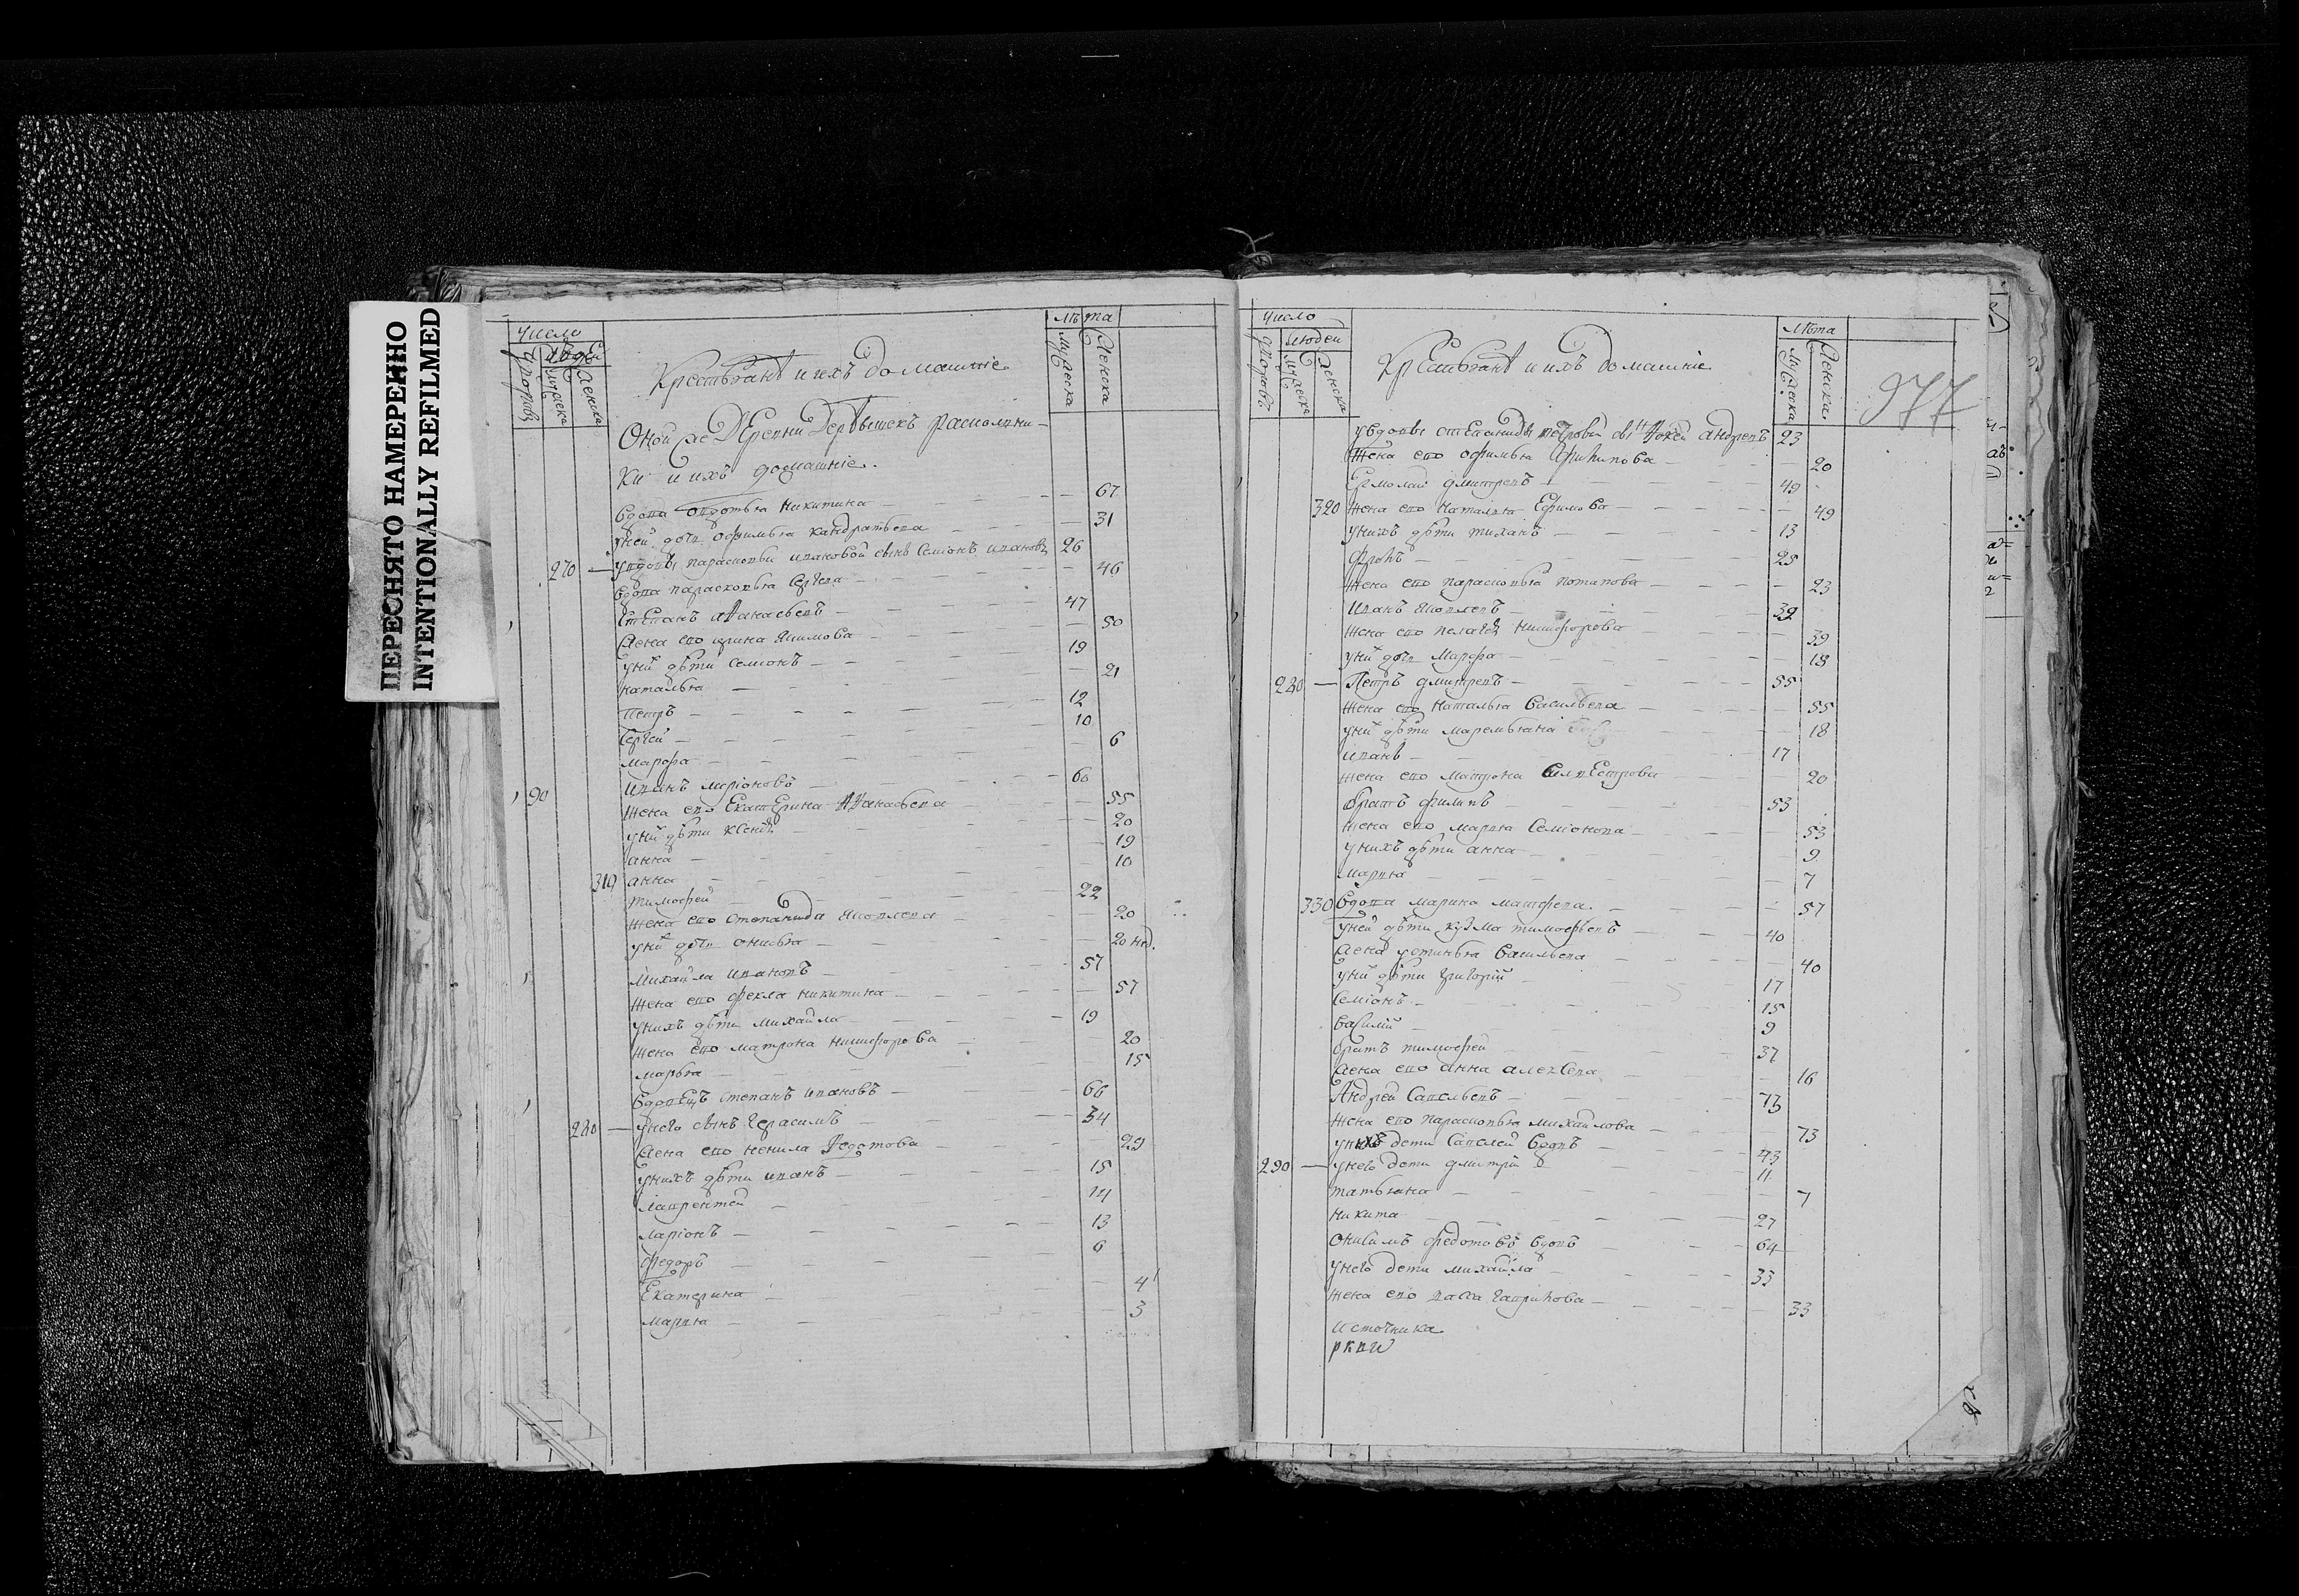 ПЕРЕСНЯТО НАМЕРЕННО
INTENTIONALLY REFILMED
Число
людей
дворовъ
мужеска
женска
Крестьянѣ и ихъ домашніе
Лѣта
мужеска
женска
Оной же деревни
и ихъ домашніе
вдова Авдотья Никитина 67
у ней дочь Офимья Кандратьева 31
270 у вдовы Парасковьи Ивановой сынъ Семіонъ Ивановъ 26
вдова Парасковья Сергѣева 46
Степанъ Аѳанасьевъ 47
жена ево Ирина Якимова 50
у ни дѣти Семіонъ 19
Наталья 21
Петръ 12
Сергей 10
Марфа 6
90 Иванъ Ларіоновъ 60
жена ево Екатерина Аѳанасьева 55
у ни дѣти Ксенія 20
анна 19
310 анна 10
тимофей 22
жена ево Степанида Яковлева 20
у ни дочь Онисья 20 не.
Михайла Ивановъ 57
жена ево Фекла Никитина 57
у нихъ дѣти Михайла 19
жена ево Матрона Никифорова 20
Марья 15
вдовецъ Степанъ Ивановъ 66
280 у него сынъ Герасимъ 34
жена ево Ненила Ѳедотова 29
у нихъ дѣти Иванъ 15
Лаврентей 14
Ларіонъ 13
Федоръ 6
Екатерина 4
Марья 3
Число
людей
дворовъ
мужеска
женска
Крестьянѣ и ихъ домашніе
Лѣта
мужеска
женска
977
у вдовы Степаниды Петровы Андреевъ 23
жена ево Офимья 20
Ермолай Дмитревъ 49
320 жена ево Наталья Ефимова 49
у нихъ дѣти Тиханъ 13
Фролъ 25
жена ево Парасковья Потапова 23
Иванъ Яковлевъ 39
жена ево Пелагея Никифорова 39
у ни дочь Марфа 18
280 Петръ Дмитревъ 55
жена ево Наталья Васильева 55
у ни дѣти Маремьяна 18
Иванъ 17
жена ево Матрона Силвестрова 20
братъ Филипъ 53
жена ево Марья Семіонова 53
у нихъ дѣти анна 9
Марья 7
330 вдова Марина Матфева 57
у ней дѣти Кузма Тимофѣевъ 40
жена Устинья Васильева 40
у ни дѣти Григорій 17
Семіонъ 15
Василій 9
братъ Тимофей 37
жена ево Анна Алексева 16
Андрей Савельевъ 73
жена ево Парасковья Михайлова 73
у нихъ дети Савелей вдовъ 43
290 у него дети Дмитрій 11
Татьяна 7
Никита 27
Онисимъ Федотовъ вдовъ 64
у него дети Михайла 33
жена ево Гаврилова 33